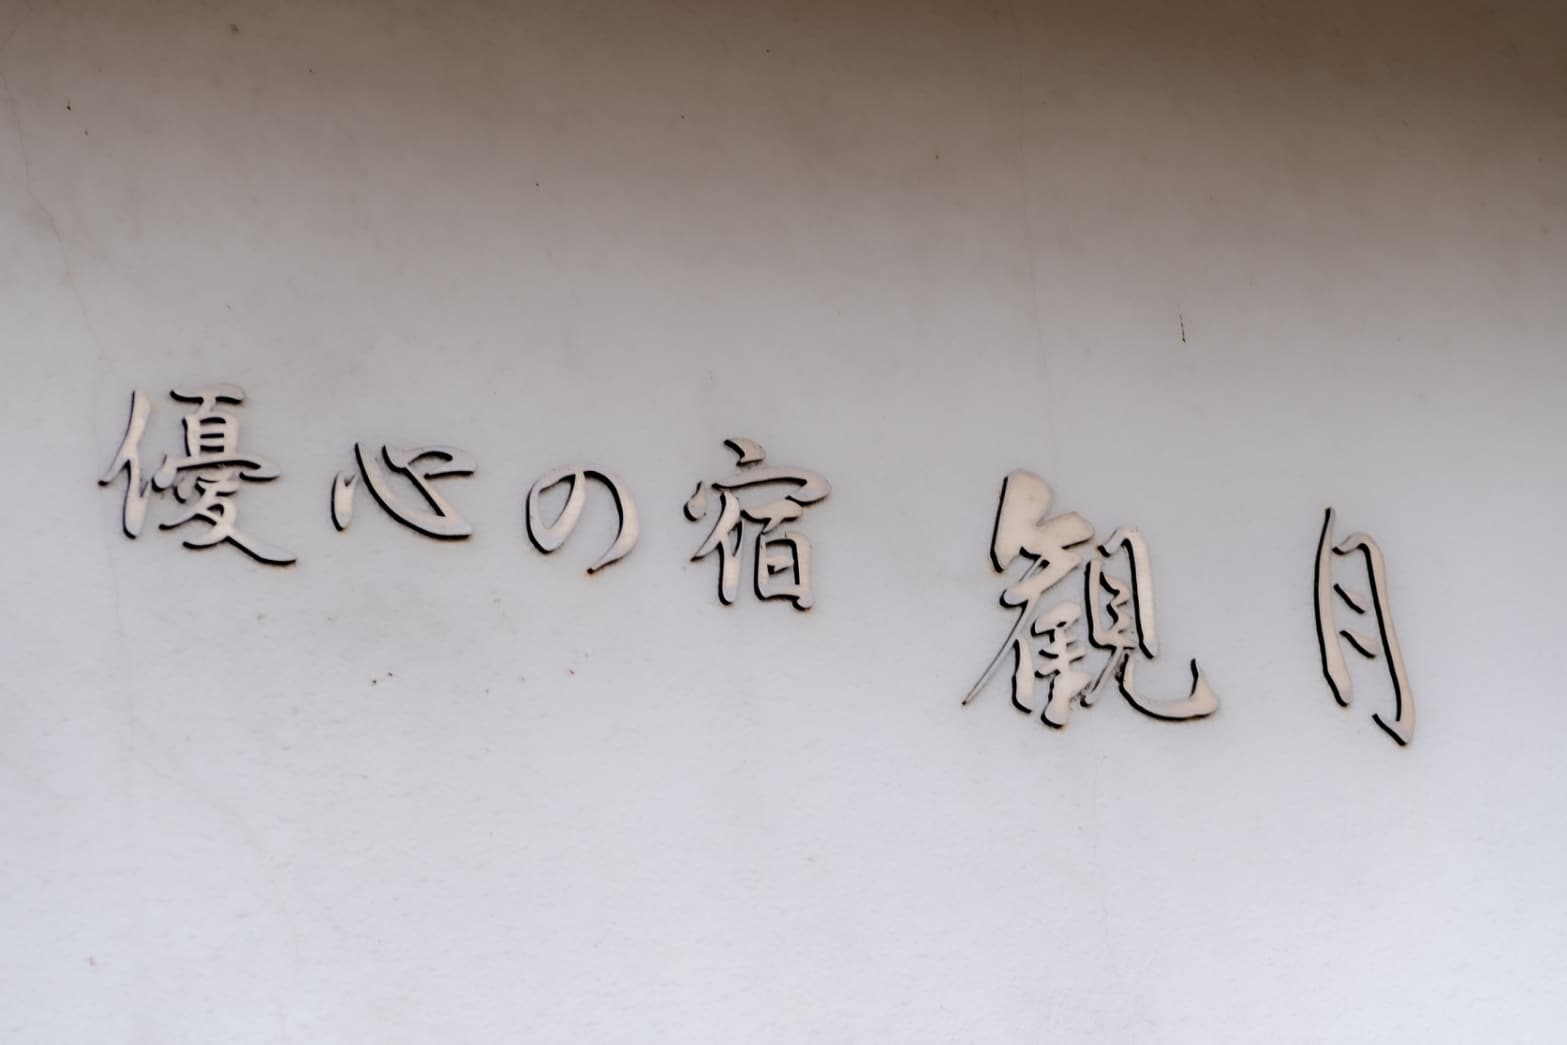 優心の宿 観月